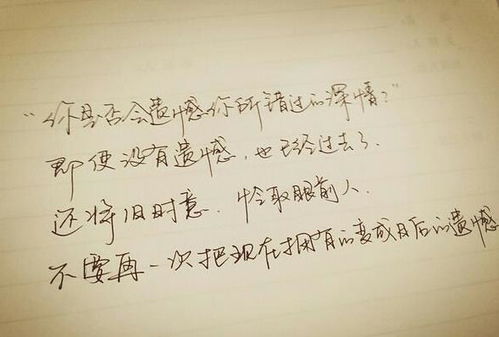 “你是否会遗憾你所错过的深情？”
即使没有遗憾，也已经过去了．
还将旧时意．怜取眼前人．
不要再一次把现在拥有的变成日后的遗憾